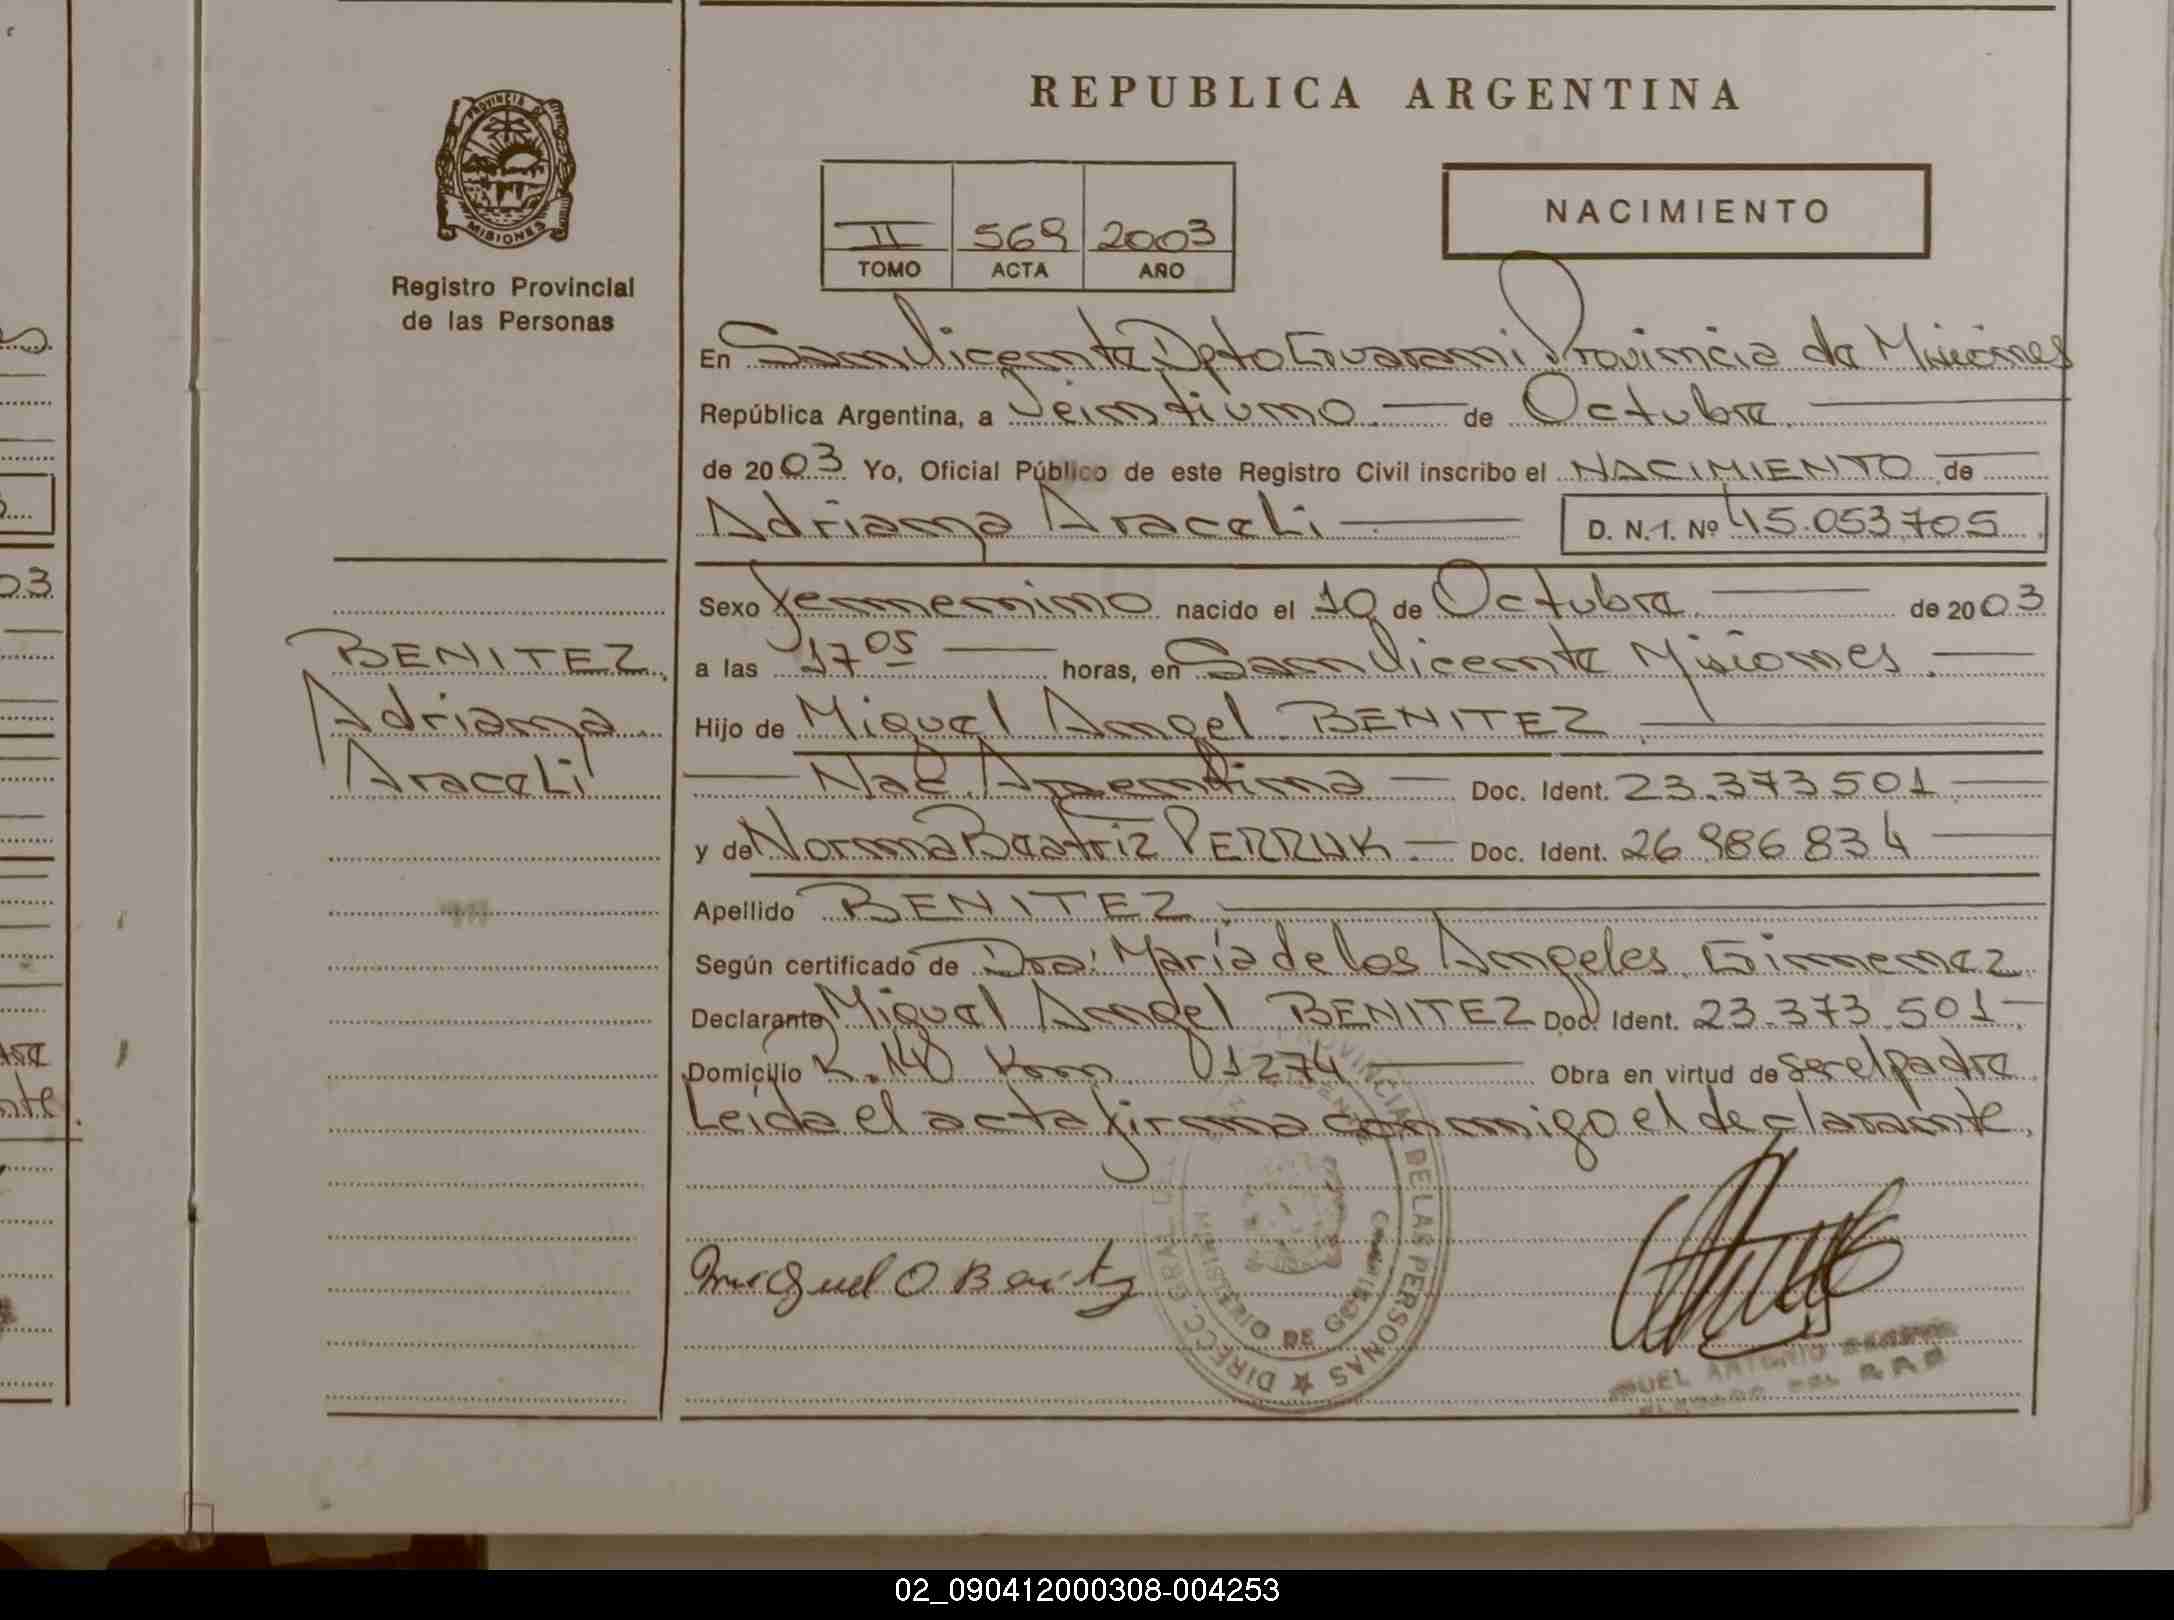 REPUBLICA ARGENTINA
PROVINCIA DE MISIONES
Registro Provincial
de las Personas
NACIMIENTO
II 569 2003
TOMO ACTA AÑO
En San Vicente Dpto Guarani Provincia de Misiones
República Argentina, a Veintiuno. de Octubre
de 2003 Yo, Oficial Público de este Registro Civil inscribo el NACIMIENTO de
Adriana Araceli D. N. I. Nº 45.053.705
Sexo femenino nacido el 10 de Octubre de 2003
a las 17 05 horas, en San Vicente Misiones.
Hijo de Miguel Angel BENITEZ
Nac. Argentina Doc. Ident. 23.373.501
y de Norma Beatriz PERRUK Doc. Ident. 26.986.834
Apellido BENITEZ
Según certificado de Dra: María de los Angeles Gimenez
Declarante Miguel Angel BENITEZ Doc. Ident. 23.373.501
Domicilio Km 1274 Obra en virtud de ser el padre
Leída el acta firma conmigo el declarante.
BENITEZ
Adriana
Araceli
Miguel A Benitez
DIRECC. GRAL. DEL PROVINCIAL DE LAS PERSONAS
MINISTERIO DE GOBIERNO
ANTONIO
03
nte.
02_090412000308-004253